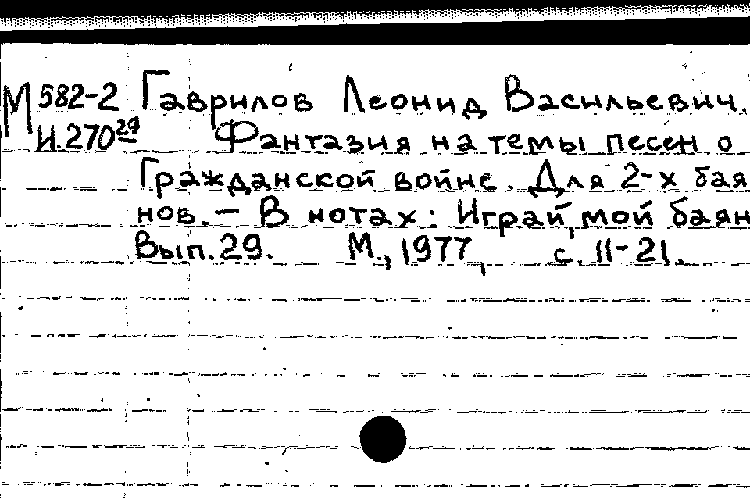 М 582-2 Гаврилов Леонид Васильевич.
И.270 29 Фантазия на темы песен о
Гражданской войне. Для 2-х бая
нов. — В нотах: Играй, мой баян
Вып. 29. М., 1977, с. 11-21.